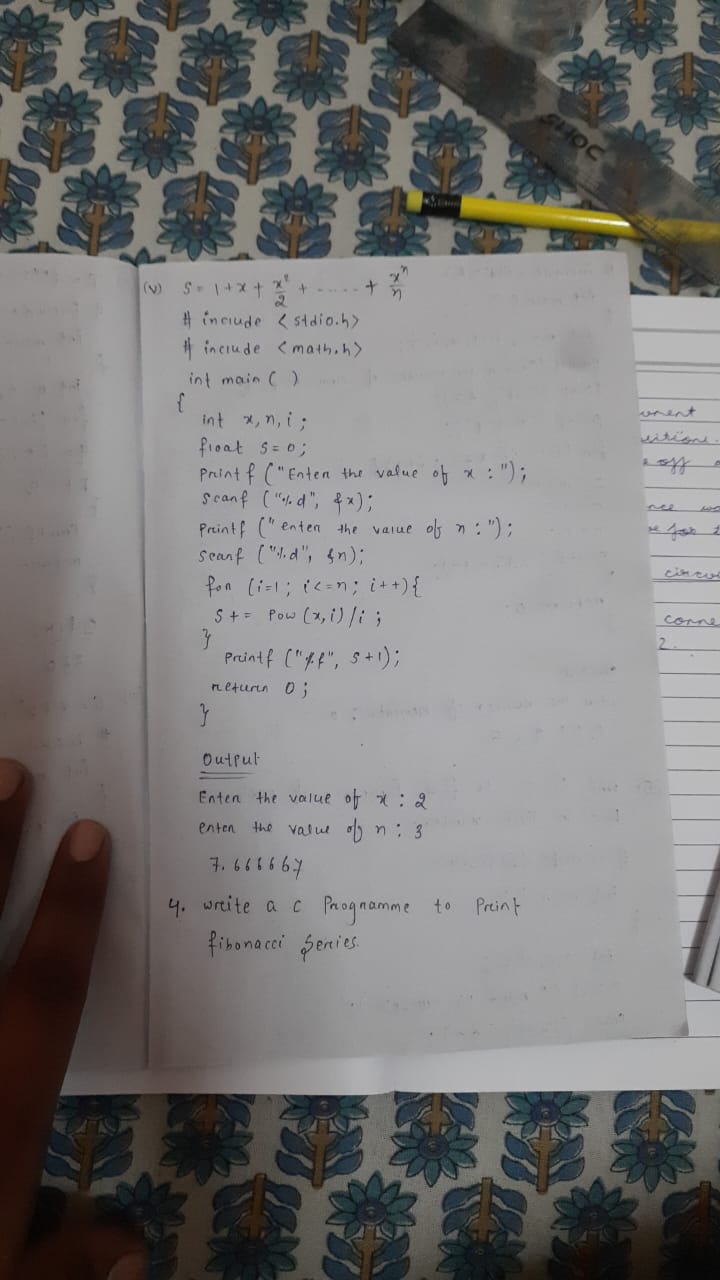 SLIOC
(v) S = 1 + x + x²/2 + ...... + xⁿ/n
# include <stdio.h>
# include <math.h>
int main ( )
{
int x, n, i ;
float S = 0 ;
Printf ("Enter the value of x : ");
Scanf ("%d", &x);
Printf ("enter the value of n : ");
Scanf ("%d", &n);
for (i=1 ; i<=n ; i++) {
S += Pow (x, i) / i ;
}
Printf ("%f", S+1);
return 0 ;
}
Output
Enter the value of x : 2
enter the value of n : 3
7.666667
4. write a c Programme to Print
fibonacci Series.
off
circu
conne
2.